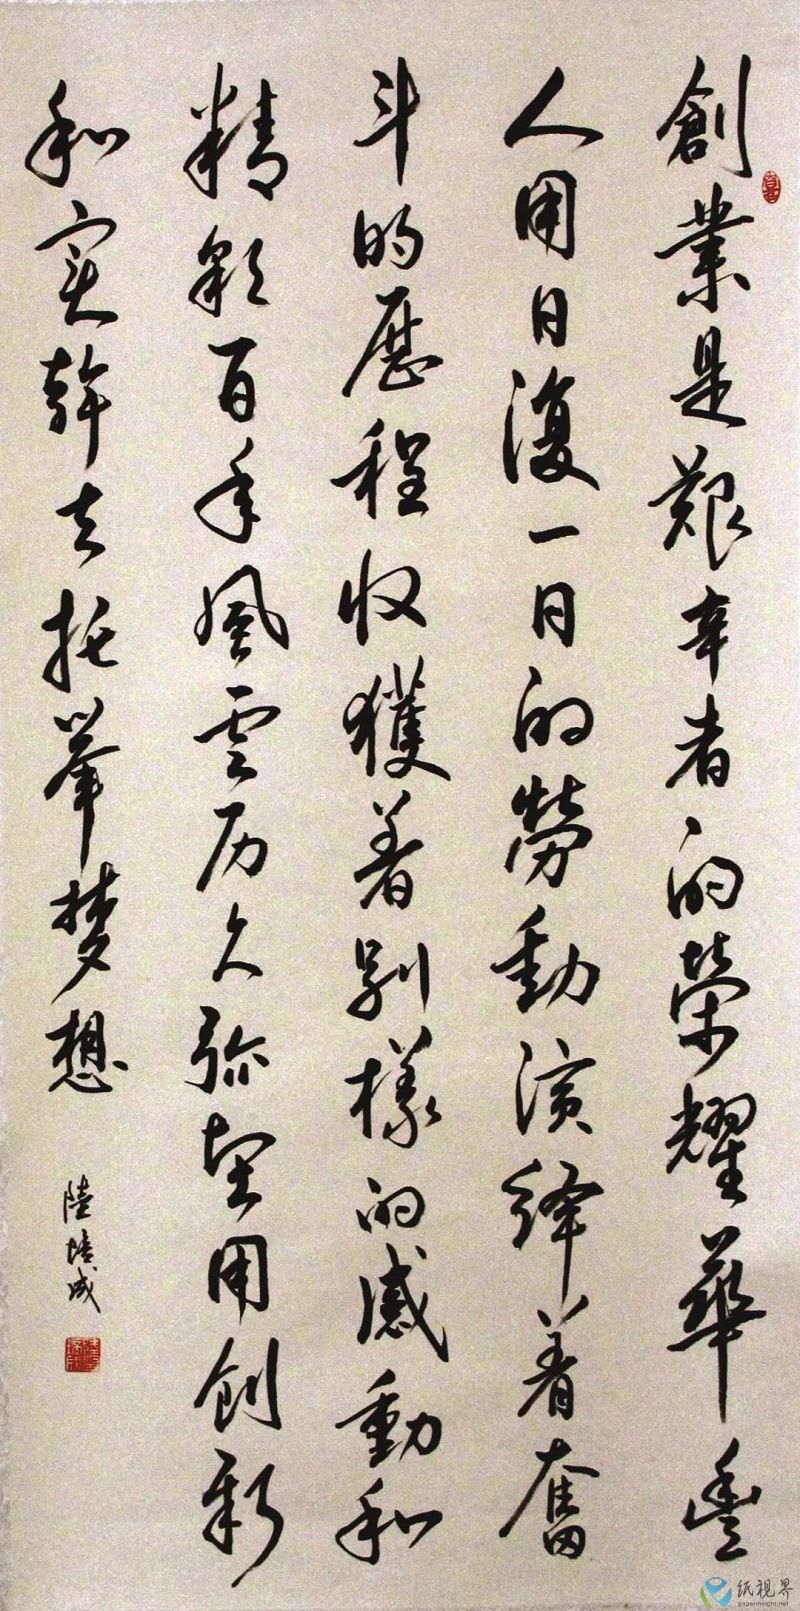 創業是艱辛者的榮耀華豐
人用日復一日的勞動演繹着奮
斗的歷程收獲着别樣的感動和
精彩百年風雲历久弥坚用创新
和实幹去托举梦想
陸培成
纸视界
paperinsight.net